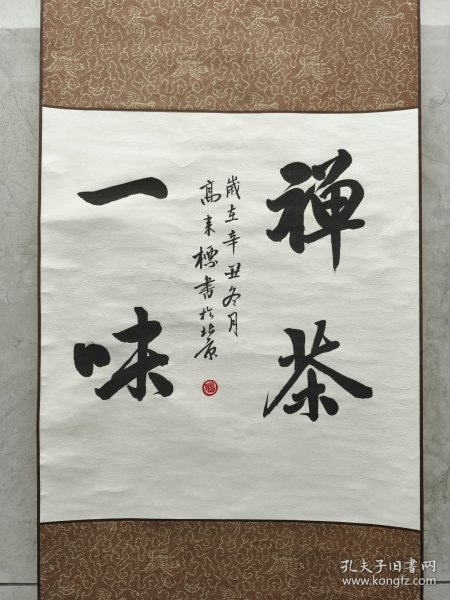 禅茶
一味
歲在辛丑冬月
高来標書於北京
孔夫子旧书网
www.kongfz.com